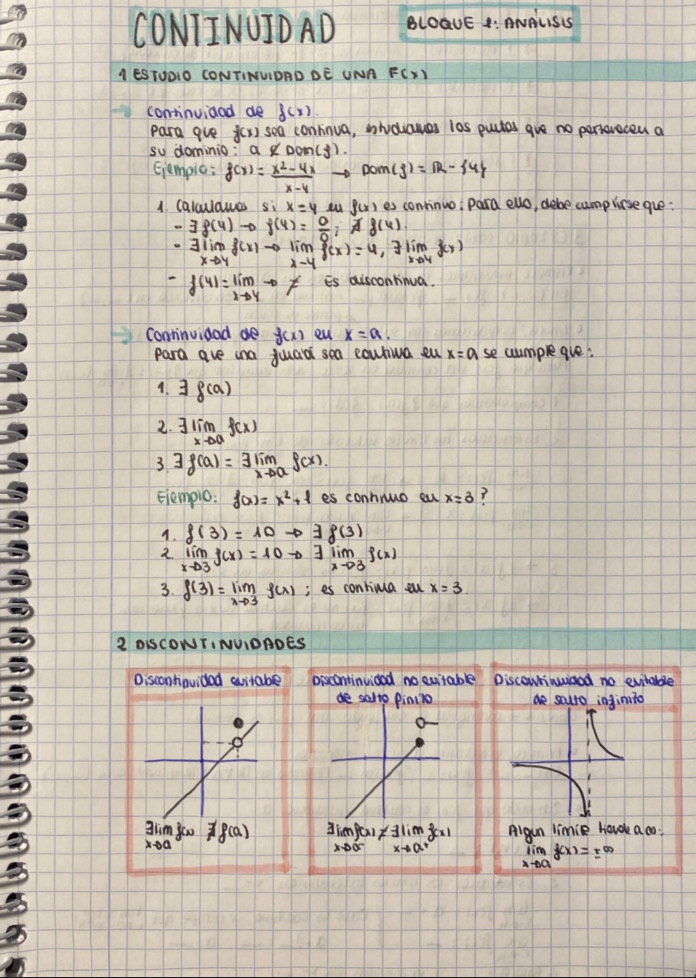 CONTINUIDAD
BLOQUE 1: ANÁLISIS
1 ESTUDIO CONTINUIDAD DE UNA F(X)
→ Continuidad de f(x).
Para que f(x) sea continua, estudiamos los puntos que no pertenecen a
su dominio: a ∉ Dom(f).
Ejemplo: f(x) = x²-4x / x-4 → Dom(f) = ℝ - {4}
1. Calculamos si x=4 en f(x) es continuo; Para ello, debe cumplirse que:
- ∃ f(4) → f(4) = 0/0; ∄ f(4).
- ∃ lim x→4 f(x) → lim x→4 f(x) = 4, ∃ lim x→4 f(x)
- f(4) = lim x→4 → ≠ Es discontinua.
→ Continuidad de f(x) en x=a.
Para que una función sea continua en x=a se cumple que:
1. ∃ f(a)
2. ∃ lim x→a f(x)
3. ∃ f(a) = ∃ lim x→a f(x).
Ejemplo: f(x) = x²+1 es continuo en x=3?
1. f(3) = 10 → ∃ f(3)
2. lim x→3 f(x) = 10 → ∃ lim x→3 f(x)
3. f(3) = lim x→3 f(x) ; es continua en x=3
2 DISCONTINUIDADES
Discontinuidad evitable
∃ lim x→a f(x) ∄ f(a)
Discontinuidad no evitable
de salto finito
∃ lim x→a⁻ f(x) ≠ ∃ lim x→a⁺ f(x)
Discontinuidad no evitable
de salto infinito
Algun limite tiende a ∞:
lim x→a f(x) = ±∞